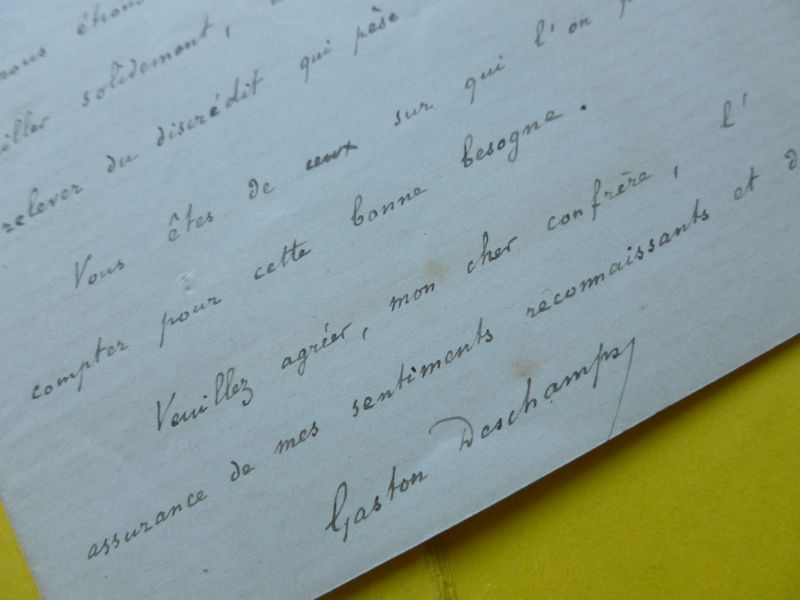 iller solidement,
relever du discrédit qui pèse
Vous êtes de ceux sur qui l'on
compter pour cette bonne besogne.
Veuillez agréer, mon cher confrère, l'
assurance de mes sentiments reconnaissants et d
Gaston Deschamps